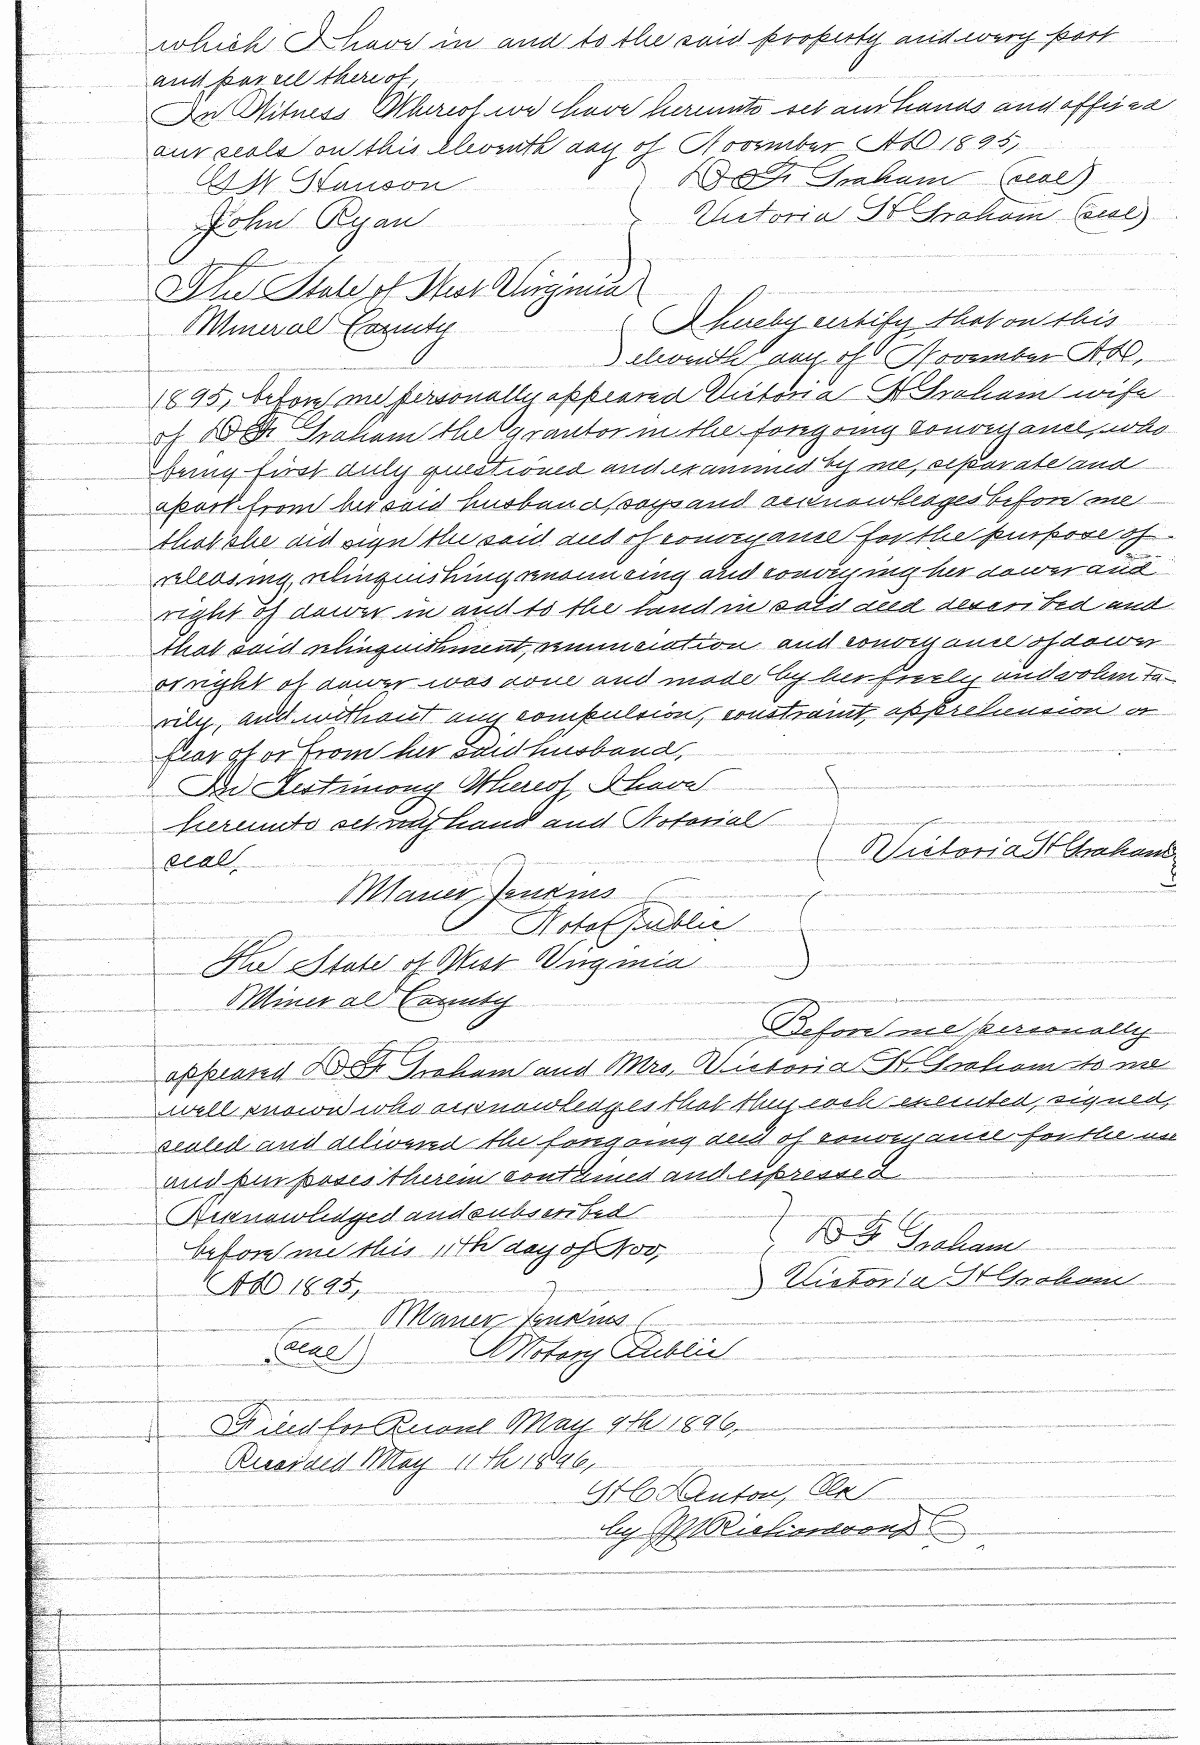 which I have in and to the said property and every part
and parcel thereof,
In Witness Whereof we have hereunto set our hands and affixed
our seals on this eleventh day of November AD 1895,
G W Hanson
D F Graham (seal)
John Ryan
Victoria H Graham (seal)
The State of West Virginia
Mineral County
I hereby certify that on this
eleventh day of November AD,
1895, before me personally appeared Victoria H Graham wife
of D F Graham the grantor in the foregoing conveyance, who
being first duly questioned and examined by me, separate and
apart from her said husband, says and acknowledges before me
that she did sign the said deed of conveyance for the purpose of
releasing, relinquishing renouncing and conveying her dower and
right of dower in and to the land in said deed described and
that said relinquishment, renunciation and conveyance of dower
or right of dower was done and made by her freely and volunta-
rily, and without any compulsion, constraint, apprehension or
fear of or from her said husband,
In Testimony Whereof, I have
hereunto set my hand and Notarial
seal,
Victoria H Graham
Maner Jenkins
Public
The State of West Virginia
Mineral County
Before me personally
appeared D F Graham and Mrs. Victoria H Graham to me
well known who acknowledges that they each executed, signed,
sealed and delivered the foregoing deed of conveyance for the use
and purposes therein contained and expressed
Acknowledged and subscribed
before me this 11th day of Nov,
D F Graham
AD 1895,
Victoria H Graham
Maner Jenkins
(seal) Notary Public
Filed for Record May 9th 1896,
Recorded May 11th 1896,
Clk
by